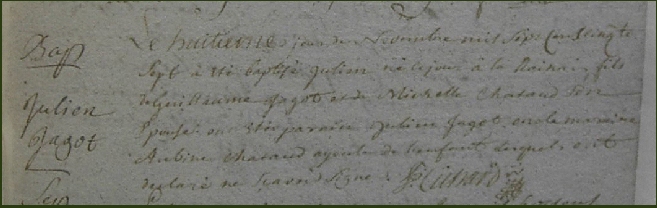 Bap
Julien
Jagot
Le huitieme jour de Novembre mil sept cens vingt
sept à été baptisé Julien né le jour à la fils
de Guillaume Jagot et de Michelle Chataud son
Epouse ont été parain Julien Jagot oncle maraine
Aubine Chataud ayeule de l'enfant lesquels ont
declaré ne scavoir signé